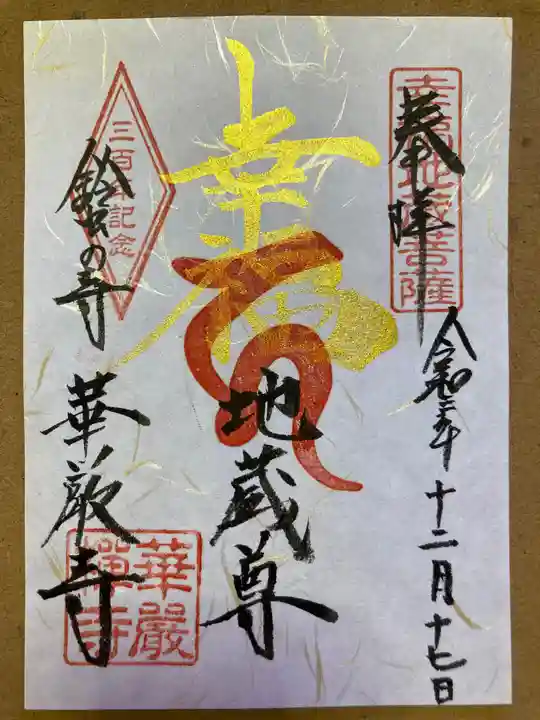 奉拝
幸福地蔵菩薩
令和五年 十二月 十七日
幸福
地蔵尊
三百年記念
鈴虫の寺
華厳寺
華嚴
禪寺